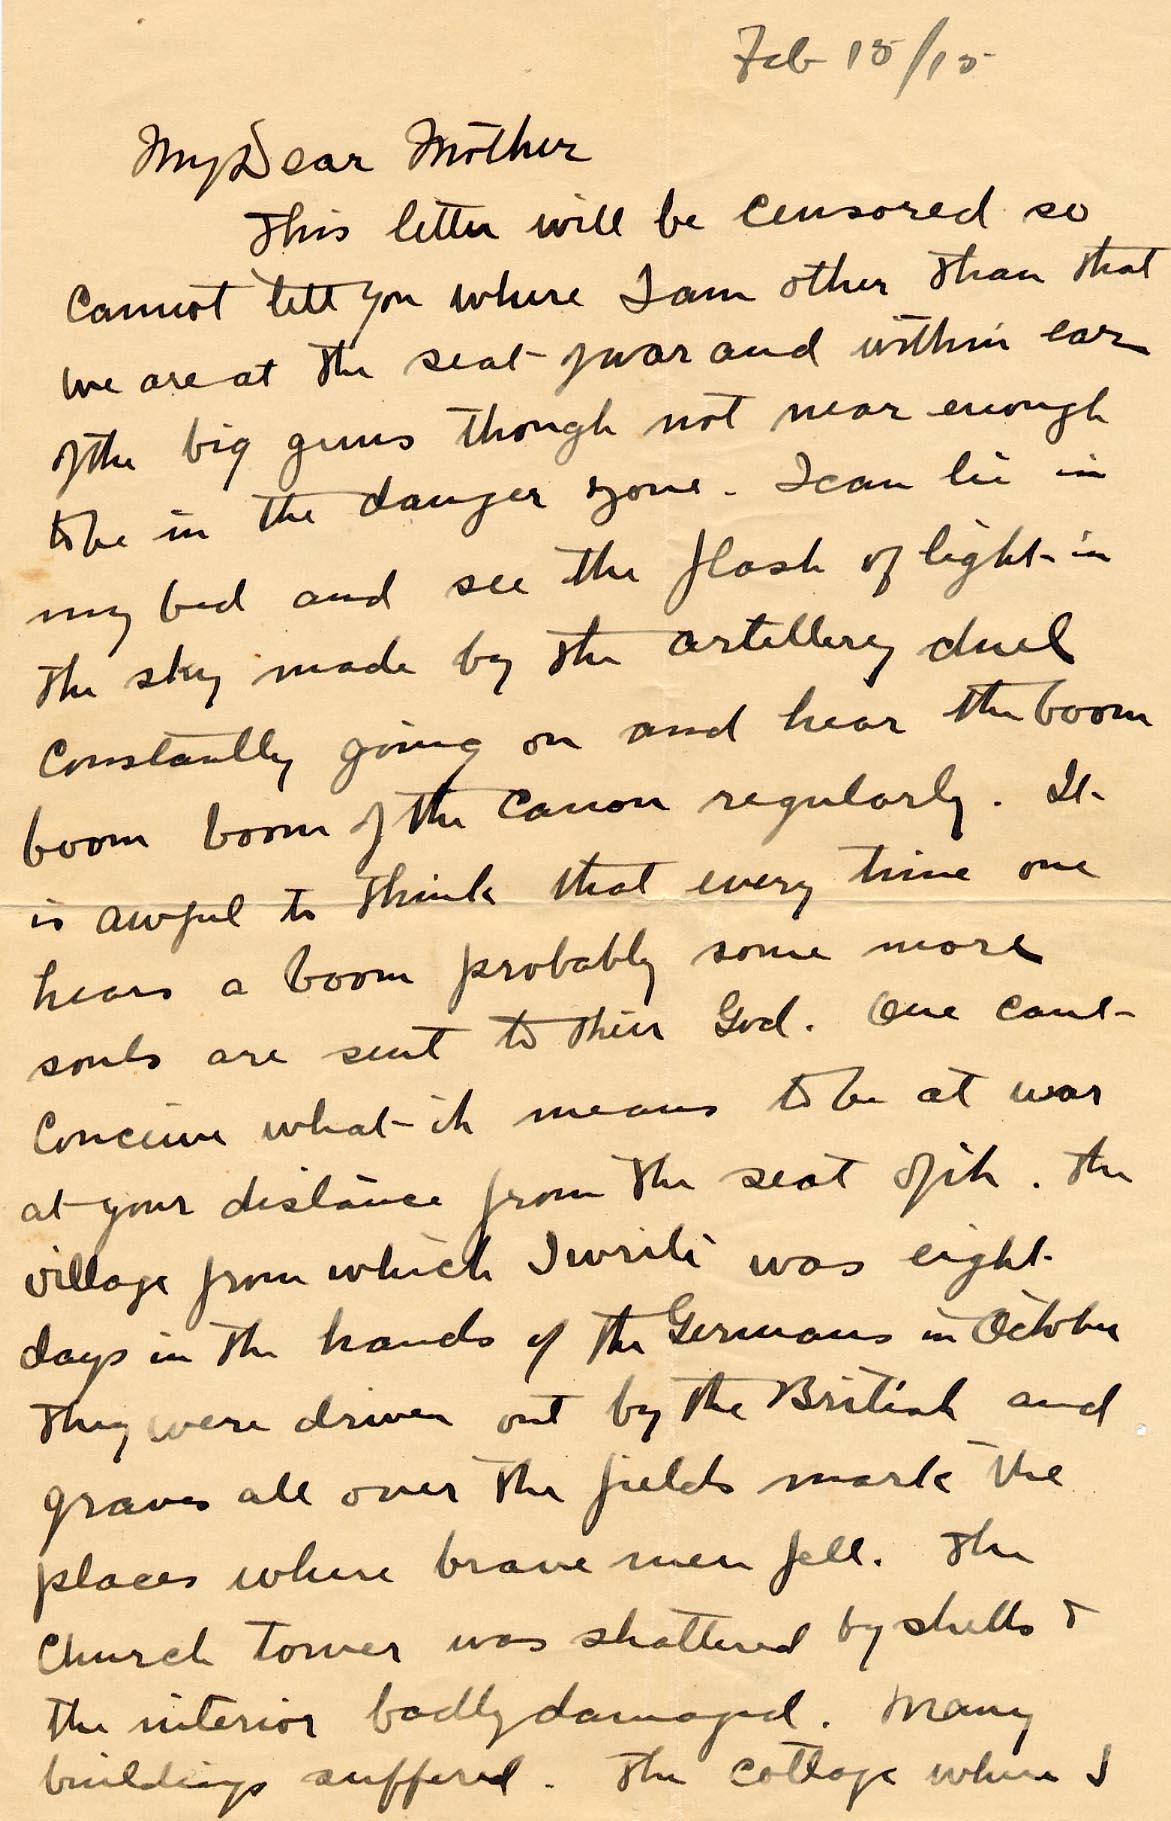 Feb 15/15
My Dear Mother
This letter will be censored so
cannot tell you where I am other than that
we are at the seat of war and within ear
of the big guns though not near enough
to be in the danger zone. I can lie in
my bed and see the flash of light in
the sky made by the artillery duel
constantly going on and hear the boom
boom boom of the canon regularly. It
is awful to think that every time one
hears a boom probably some more
souls are sent to their God. One cant
conceive what it means to be at war
at your distance from the seat of it. The
village from which I write was eight
days in the hands of the Germans in October
They were driven out by the British and
graves all over the fields mark the
places where brave men fell. The
Church tower was shattered by shells &
the interior badly damaged. Many
buildings suffered. The cottage where I